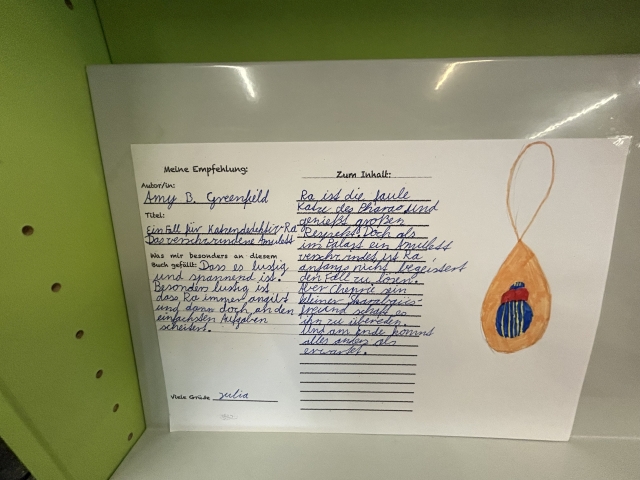 Meine Empfehlung:
Autor/in:
Amy B. Greenfield
Titel:
Ein Fall für Katzendetektiv Ra
Das verschwundene Amulett
Was mir besonders an diesem
Buch gefällt: Dass es lustig
und spannend ist.
Besonders lustig ist
dass Ra immer angibt
und dann doch an den
einfachsten Aufgaben
scheitert.
Viele Grüße Julia
Zum Inhalt:
Ra ist die faule
Katze des Pharao und
genießt großen
Respekt. Doch als
im Palast ein Amulett
verschwindet ist Ra
anfangs nicht begeistert
den Fall zu lösen.
Aber Chenri sein
kleiner
freund schaft es
ihn zu übereden.
Und am ende kommt
alles anders als
erwartet.